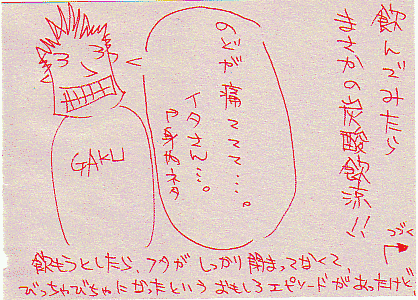 飲んでみたら
まさかの炭酸飲涼!!
つづく
のどが 痛ててて…。
イタさん…。
GAKU
飲もうとしたら、フタが しっかり閉まってなくて、
びっちゃびちゃになったという おもしろエピソードが、あったけど。